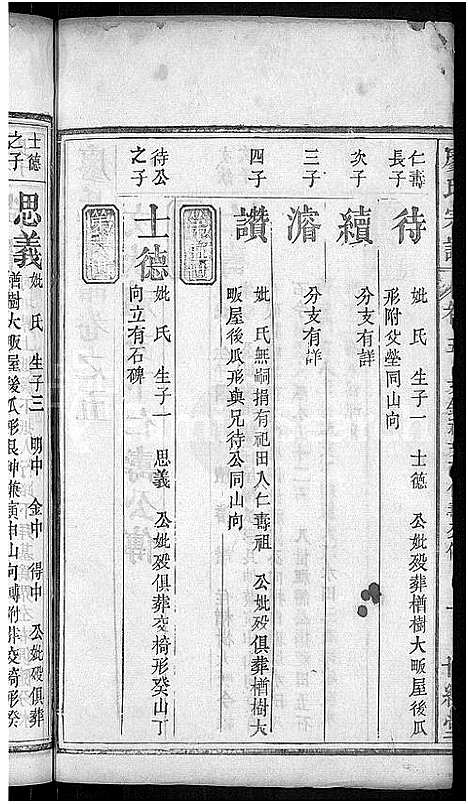 仁壽長子
待
妣 氏 生子一 士德 公妣歿葬楢樹大畈屋後瓜
形附父塋同山向
次子
續
分支有詳
三子
濬
分支有詳
四子
讚
妣 氏無嗣捐有祀田入仁壽祖 公妣歿俱葬楢樹大
畈屋後瓜形與兄待公同山向
待公之子
士德
妣 氏 生子一 思義 公妣歿俱葬交椅形癸山丁
向立有石碑
士德之子
思義
妣 氏 生子三 明中 金中 得中 公妣歿俱葬
楢樹大畈屋後瓜形艮坤兼寅申山向轉附葬交椅形癸